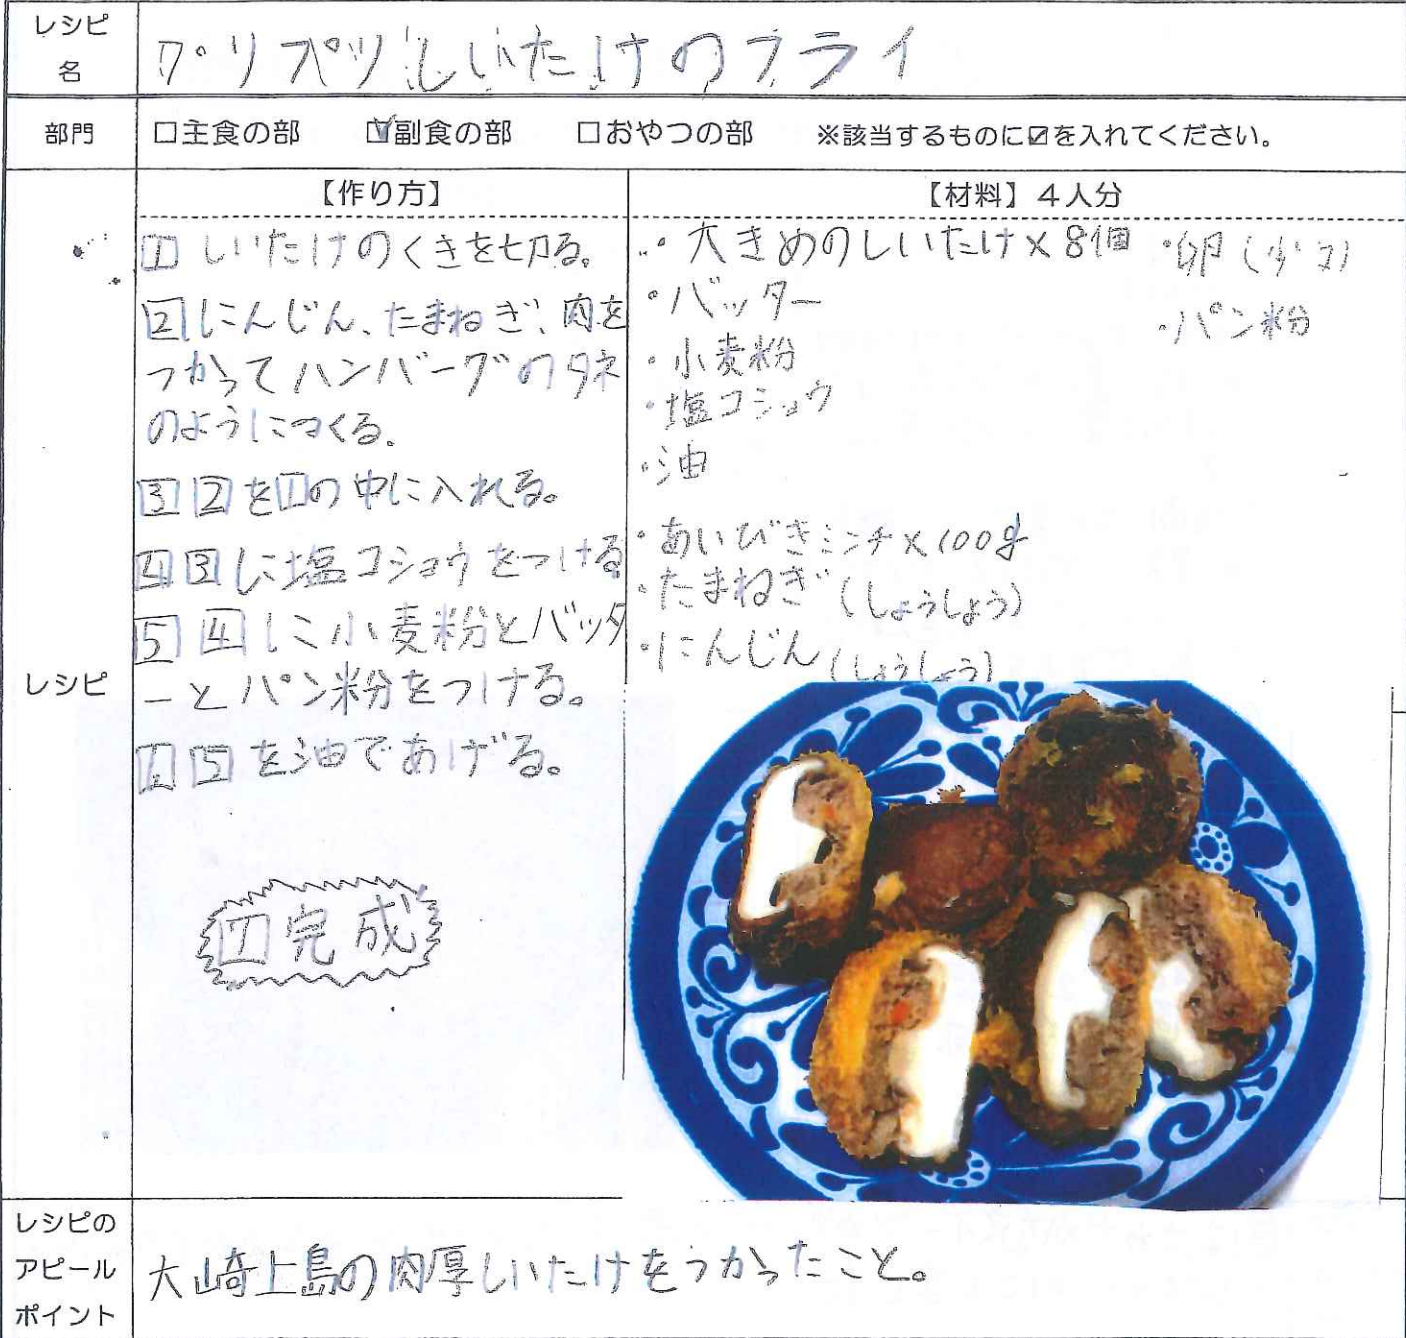 レシピ名
プリプリしいたけのフライ
部門
□主食の部 ☑副食の部 □おやつの部 ※該当するものに☑を入れてください。
レシピ
【作り方】
1 しいたけのくきを切る。
2 にんじん、たまねぎ、肉を
つかってハンバーグのタネ
のようにつくる。
3 2を1の中に入れる。
4 3に塩コショウをつける
5 4に小麦粉とバッタ
ーとパン粉をつける。
5を油であげる。
7 完成
【材料】4人分
・大きめのしいたけ×8個
・バッター
・小麦粉
・塩コショウ
・油
・あいびきミンチ×100g
・たまねぎ(しょうしょう)
・にんじん(しょうしょう)
・卵
・パン粉
レシピの
アピール
ポイント
大崎上島の肉厚しいたけをつかったこと。